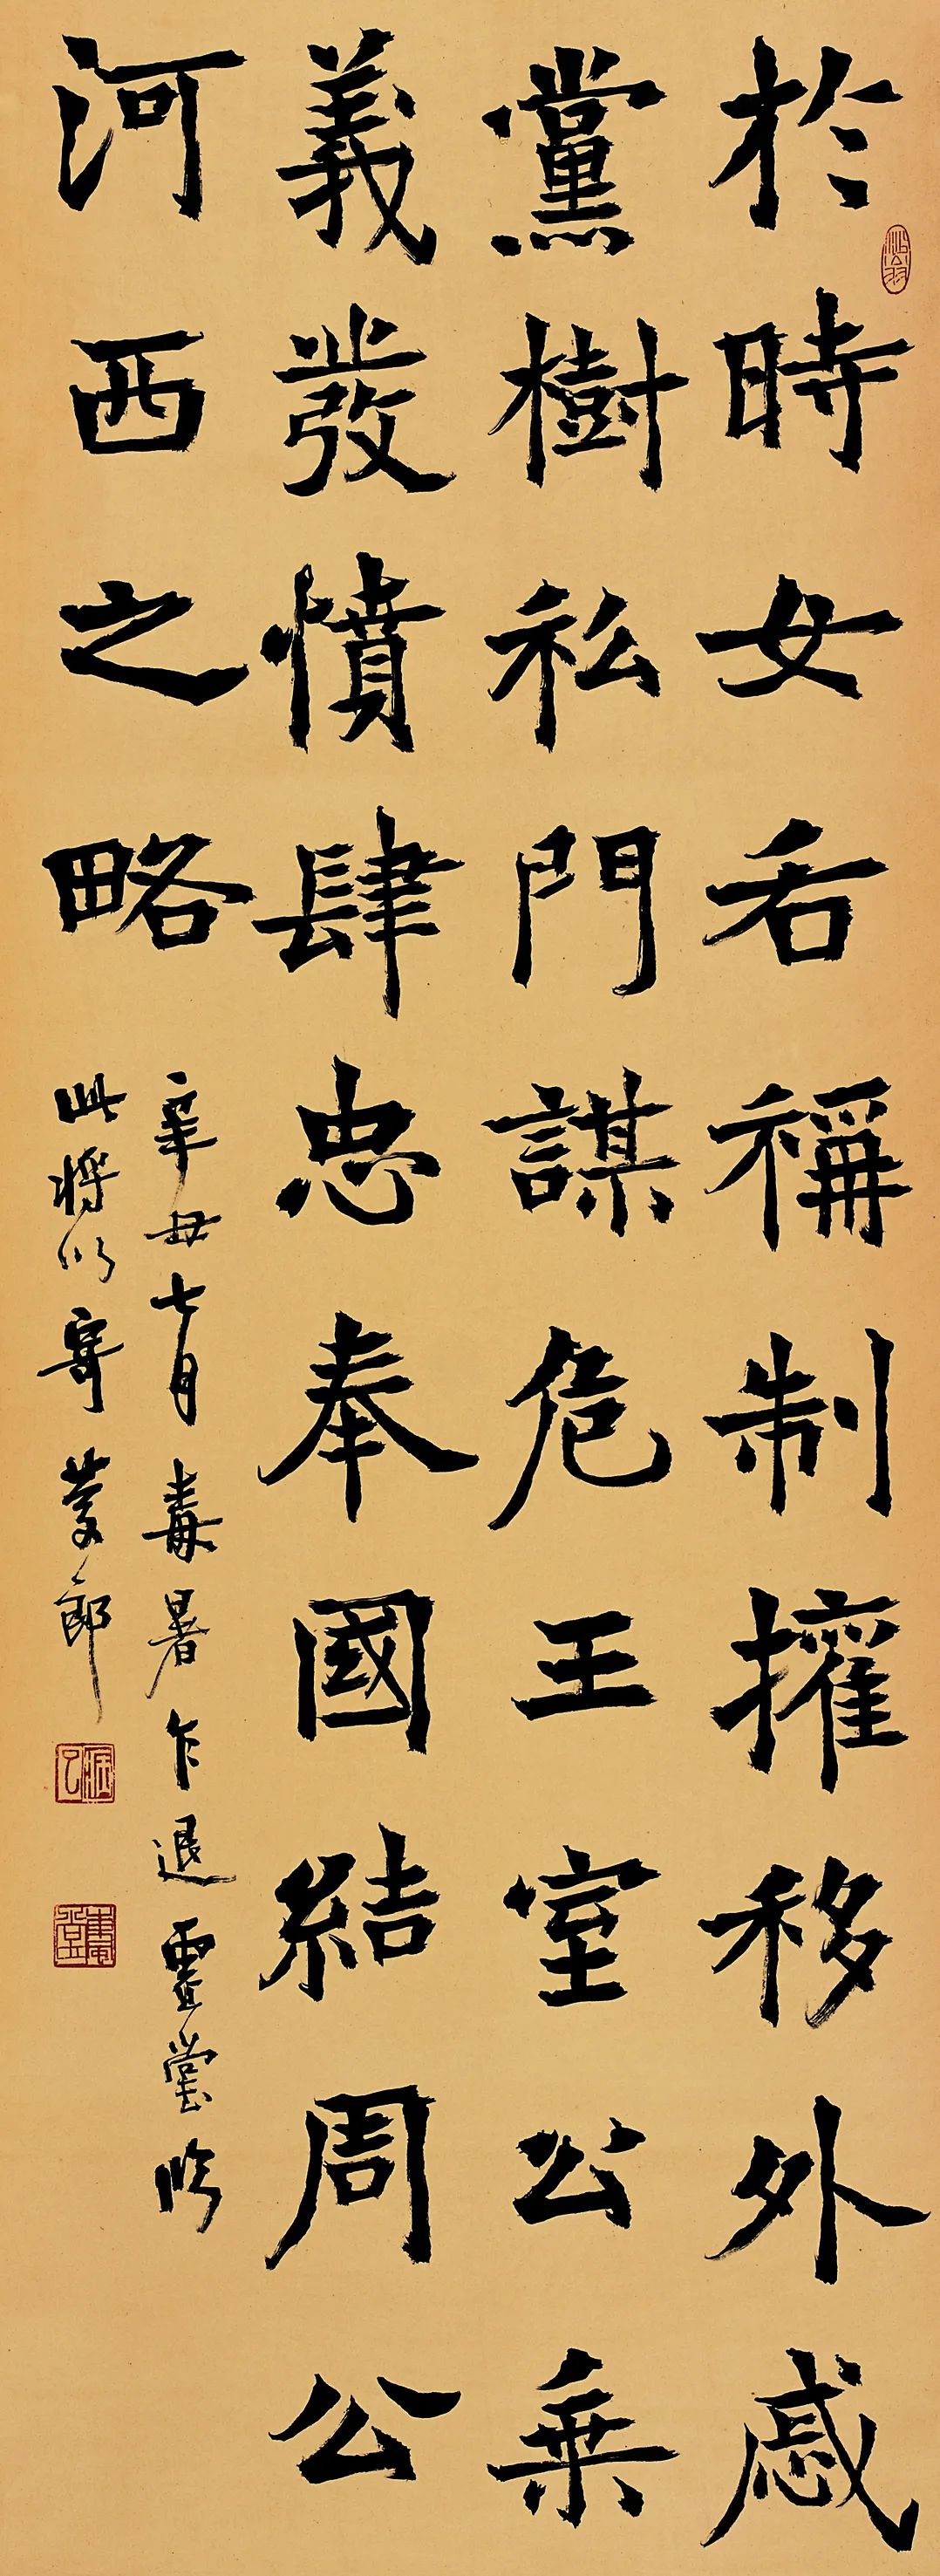 於時女后稱制擁移外慼
黨樹私門謀危王室公乗
義發憤肆忠奉國結周公
河西之略
辛丑七月毒暑乍退靈堂臨
此將以寄